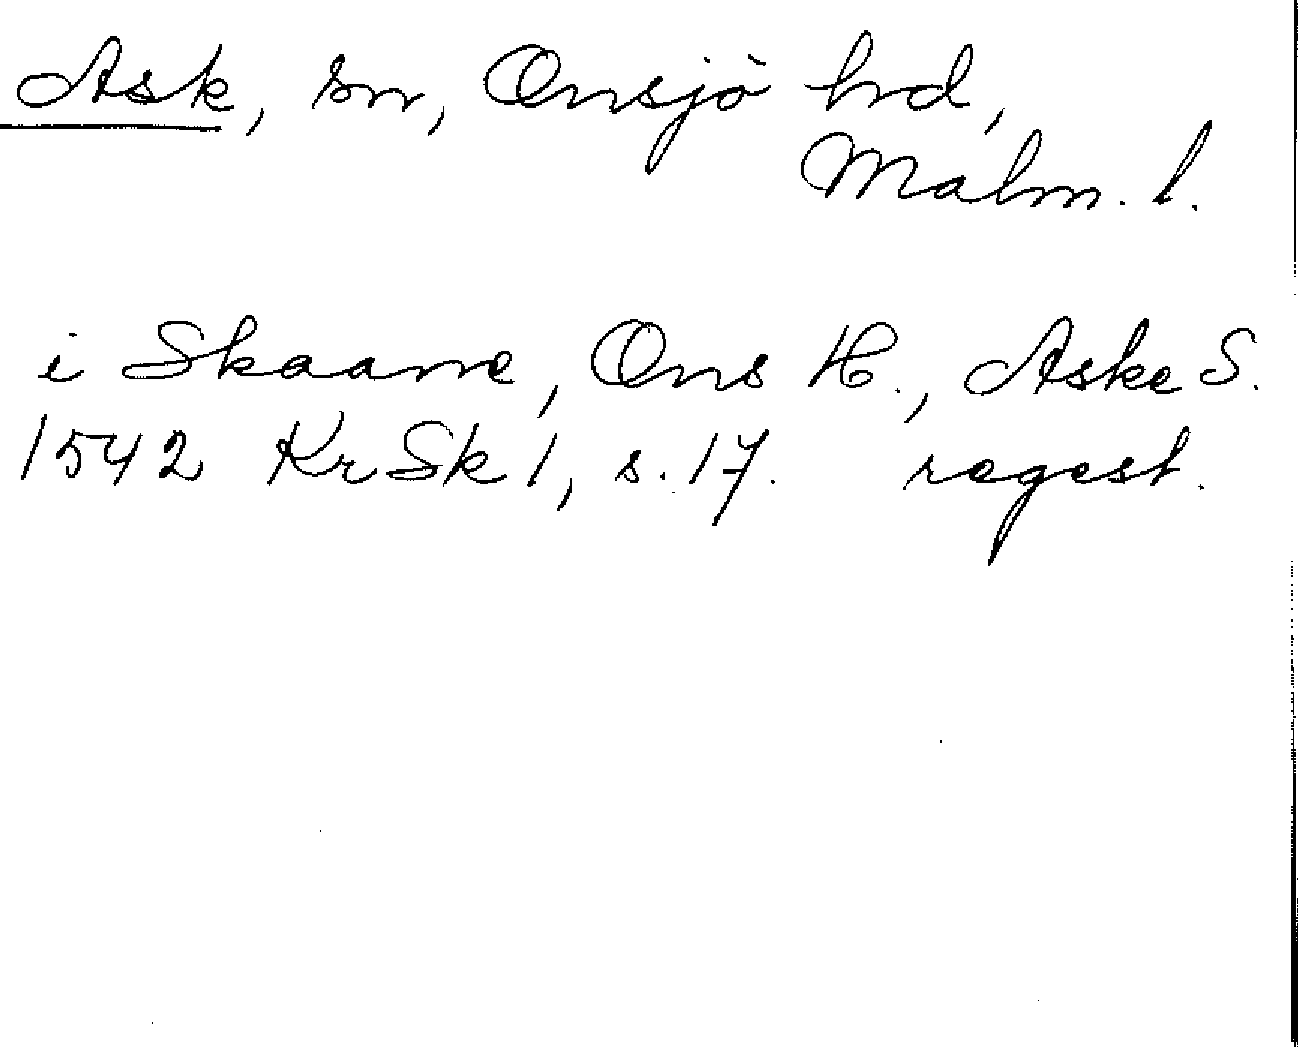 Ask, sn, Onsjö hrd,
Malm. l.
i Skaane, Ons H., Aske S.
1542 KrSk 1, s. 17. regest.